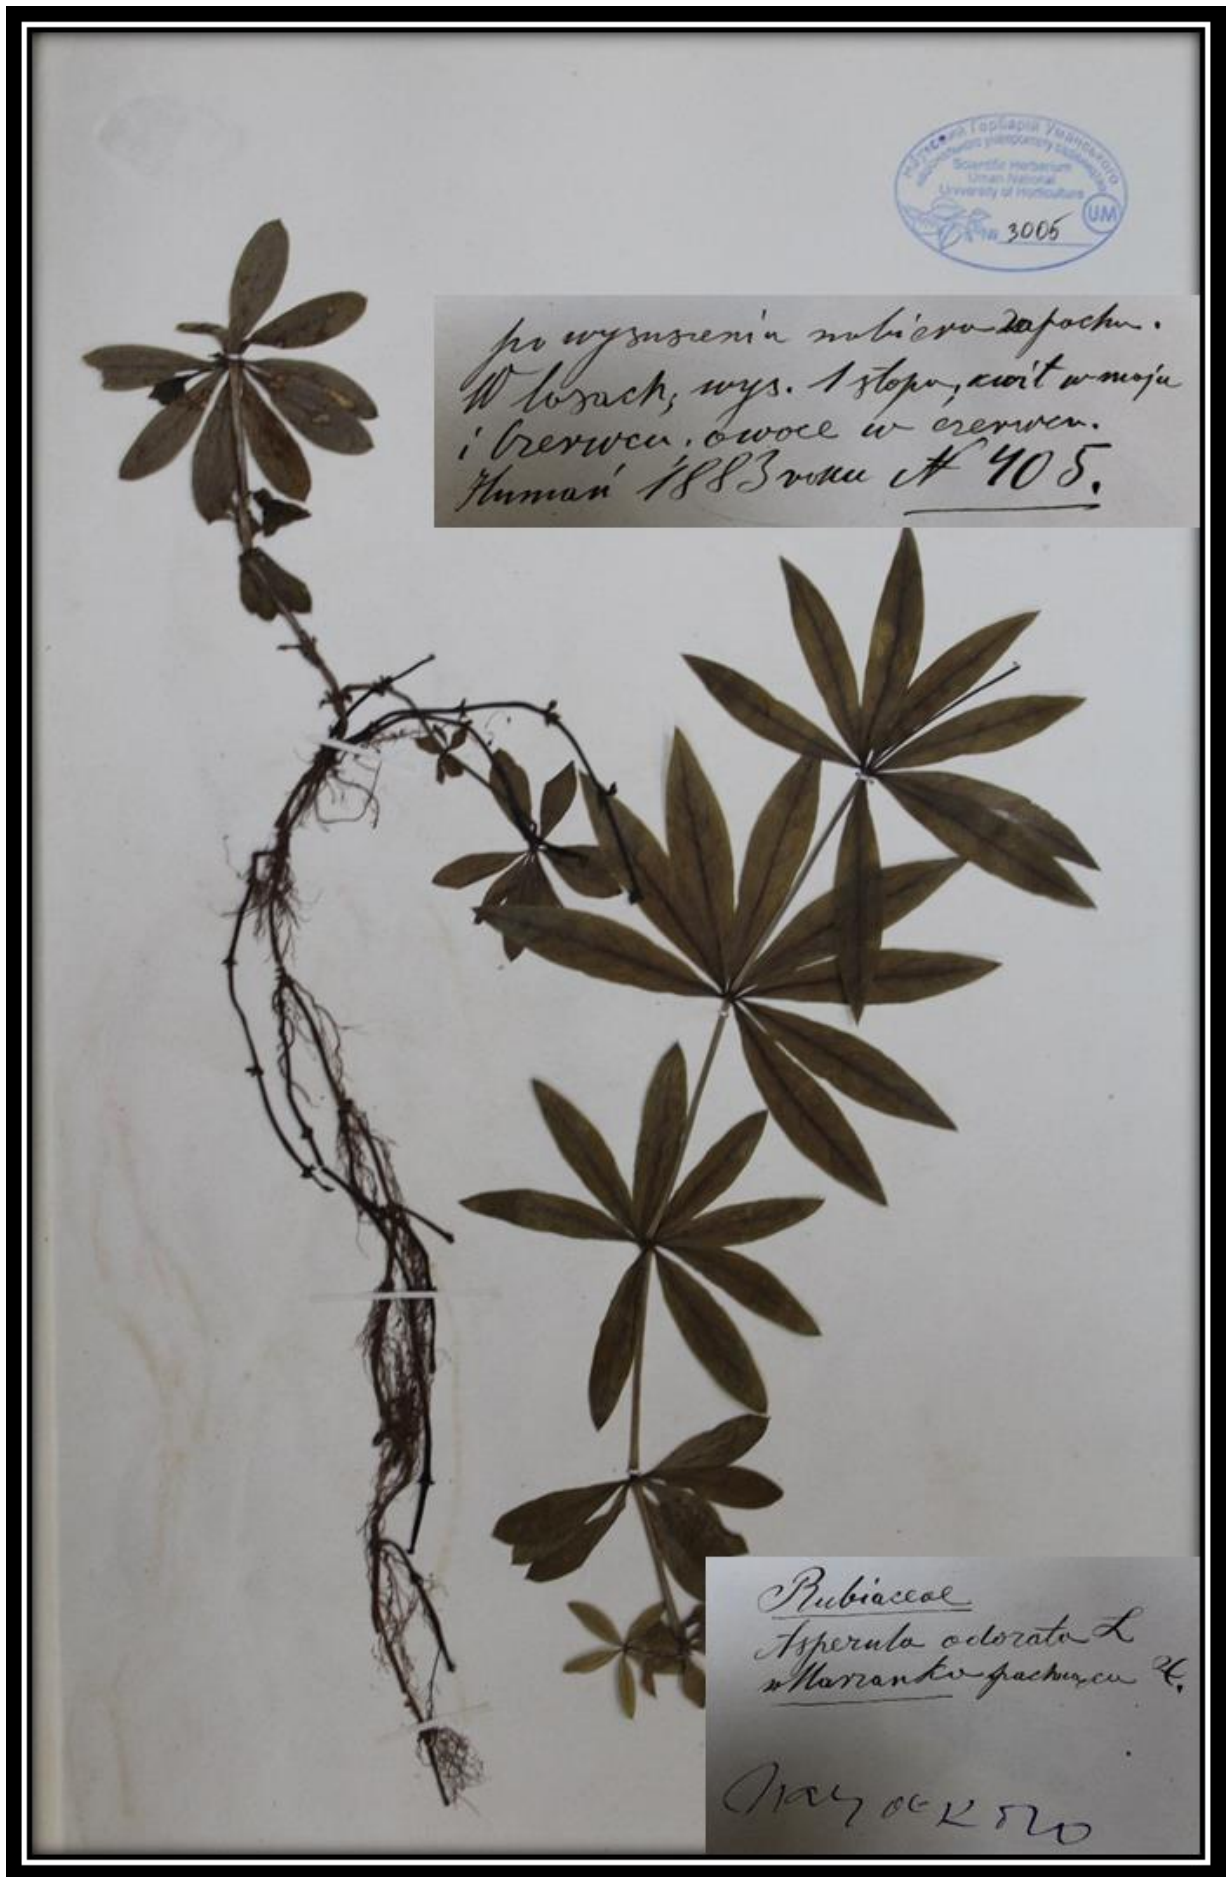 Науковий Гербарій Уманського
національного університету садівництва
Scientific Herbarium
Uman National
University of Horticulture
UM
№ 3005
po wysuszeniu nabiera zapachu.
W lasach, wys. 1 stopa, kwit w maju
i Czerwcu, owoce w czerwcu.
Humań 1883 roku N 405.
Rubiaceae
Asperula odorata L
Marzanka pachnąca ♃.